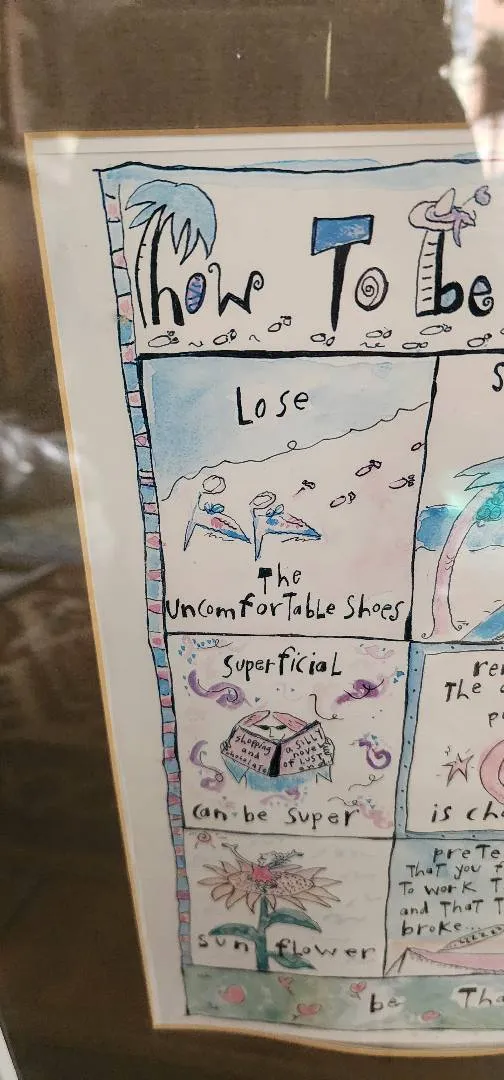 how To be
Lose
The
uncomforTable Shoes
S
Superficial
shopping
and
chocolate
a SILLY
novel
of LUST
can be super
The
is
sun flower
preTe
ThaT you f
To work T
and ThaT T
broke...
be Tha